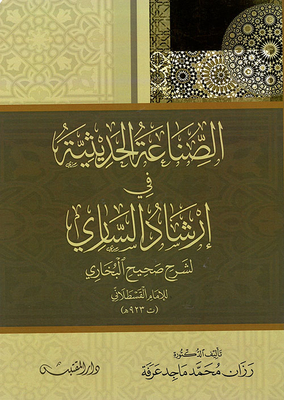 الصناعة الحديثية
في
إرشاد الساري
لشرح صحيح البخاري
للإمام القسطلاني
(ت ٩٢٣ هـ)
تأليف الدكتورة
رزان محمد ماجد عرفة
دار المقتبس